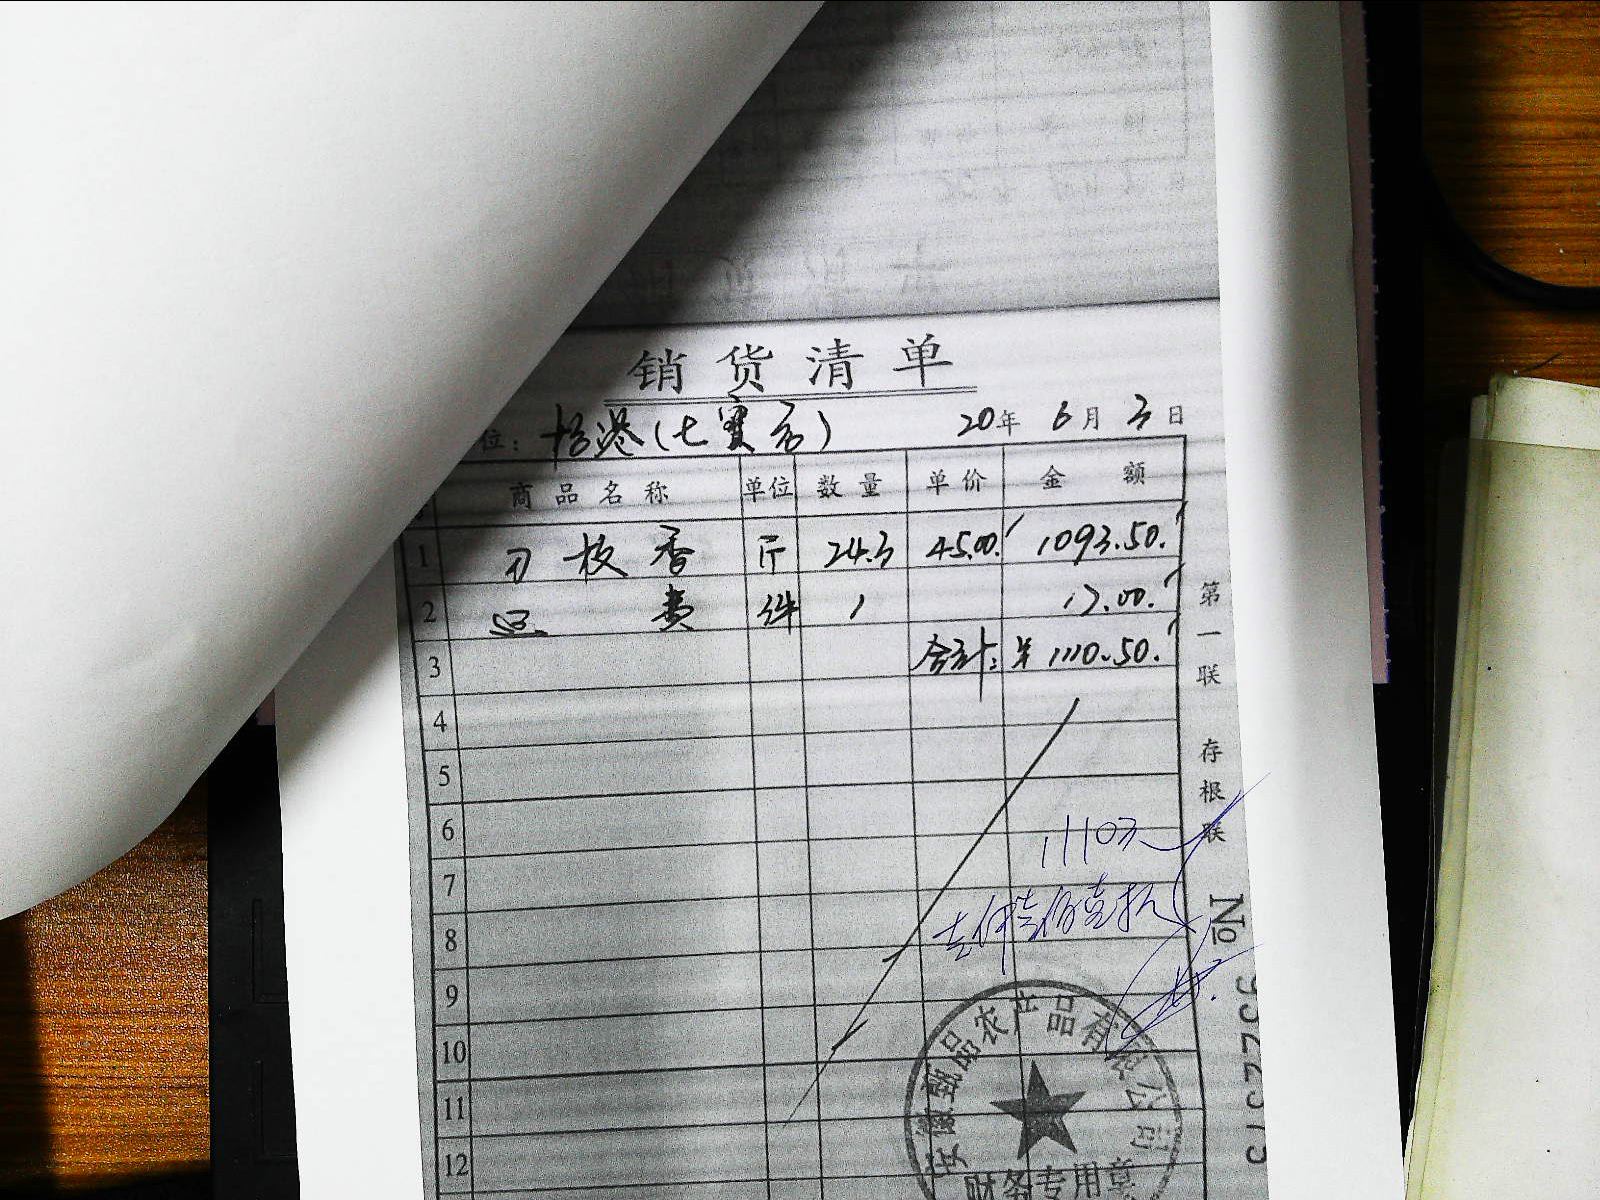 销货清单
位: 怡港(七宝店) 20年 6月 3日
商品名称 单位 数量 单价 金额
1 刀板香 斤 24.3 45.00 1093.50
2 运费 件 1 17.00
3 合计: ¥ 1110.50
4
5
6
7
8
9
10
11
12
第一联 存根联
No
安徽甄品农产品有限公司
财务专用章